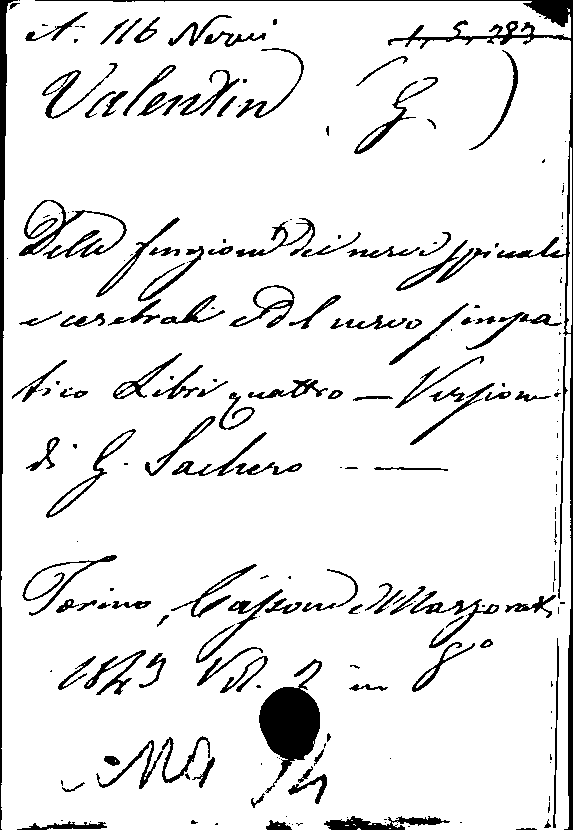 A. 116 Nervi 1. 5. 283
Valentin (G.)
Delle funzioni dei nervi spinali
e cerebrali e del nervo simpa
tico Libri quattro — Versione
di G. Sachero - —
Torino, Cassone e Marzorati
1843 Vol. 2 in 8°